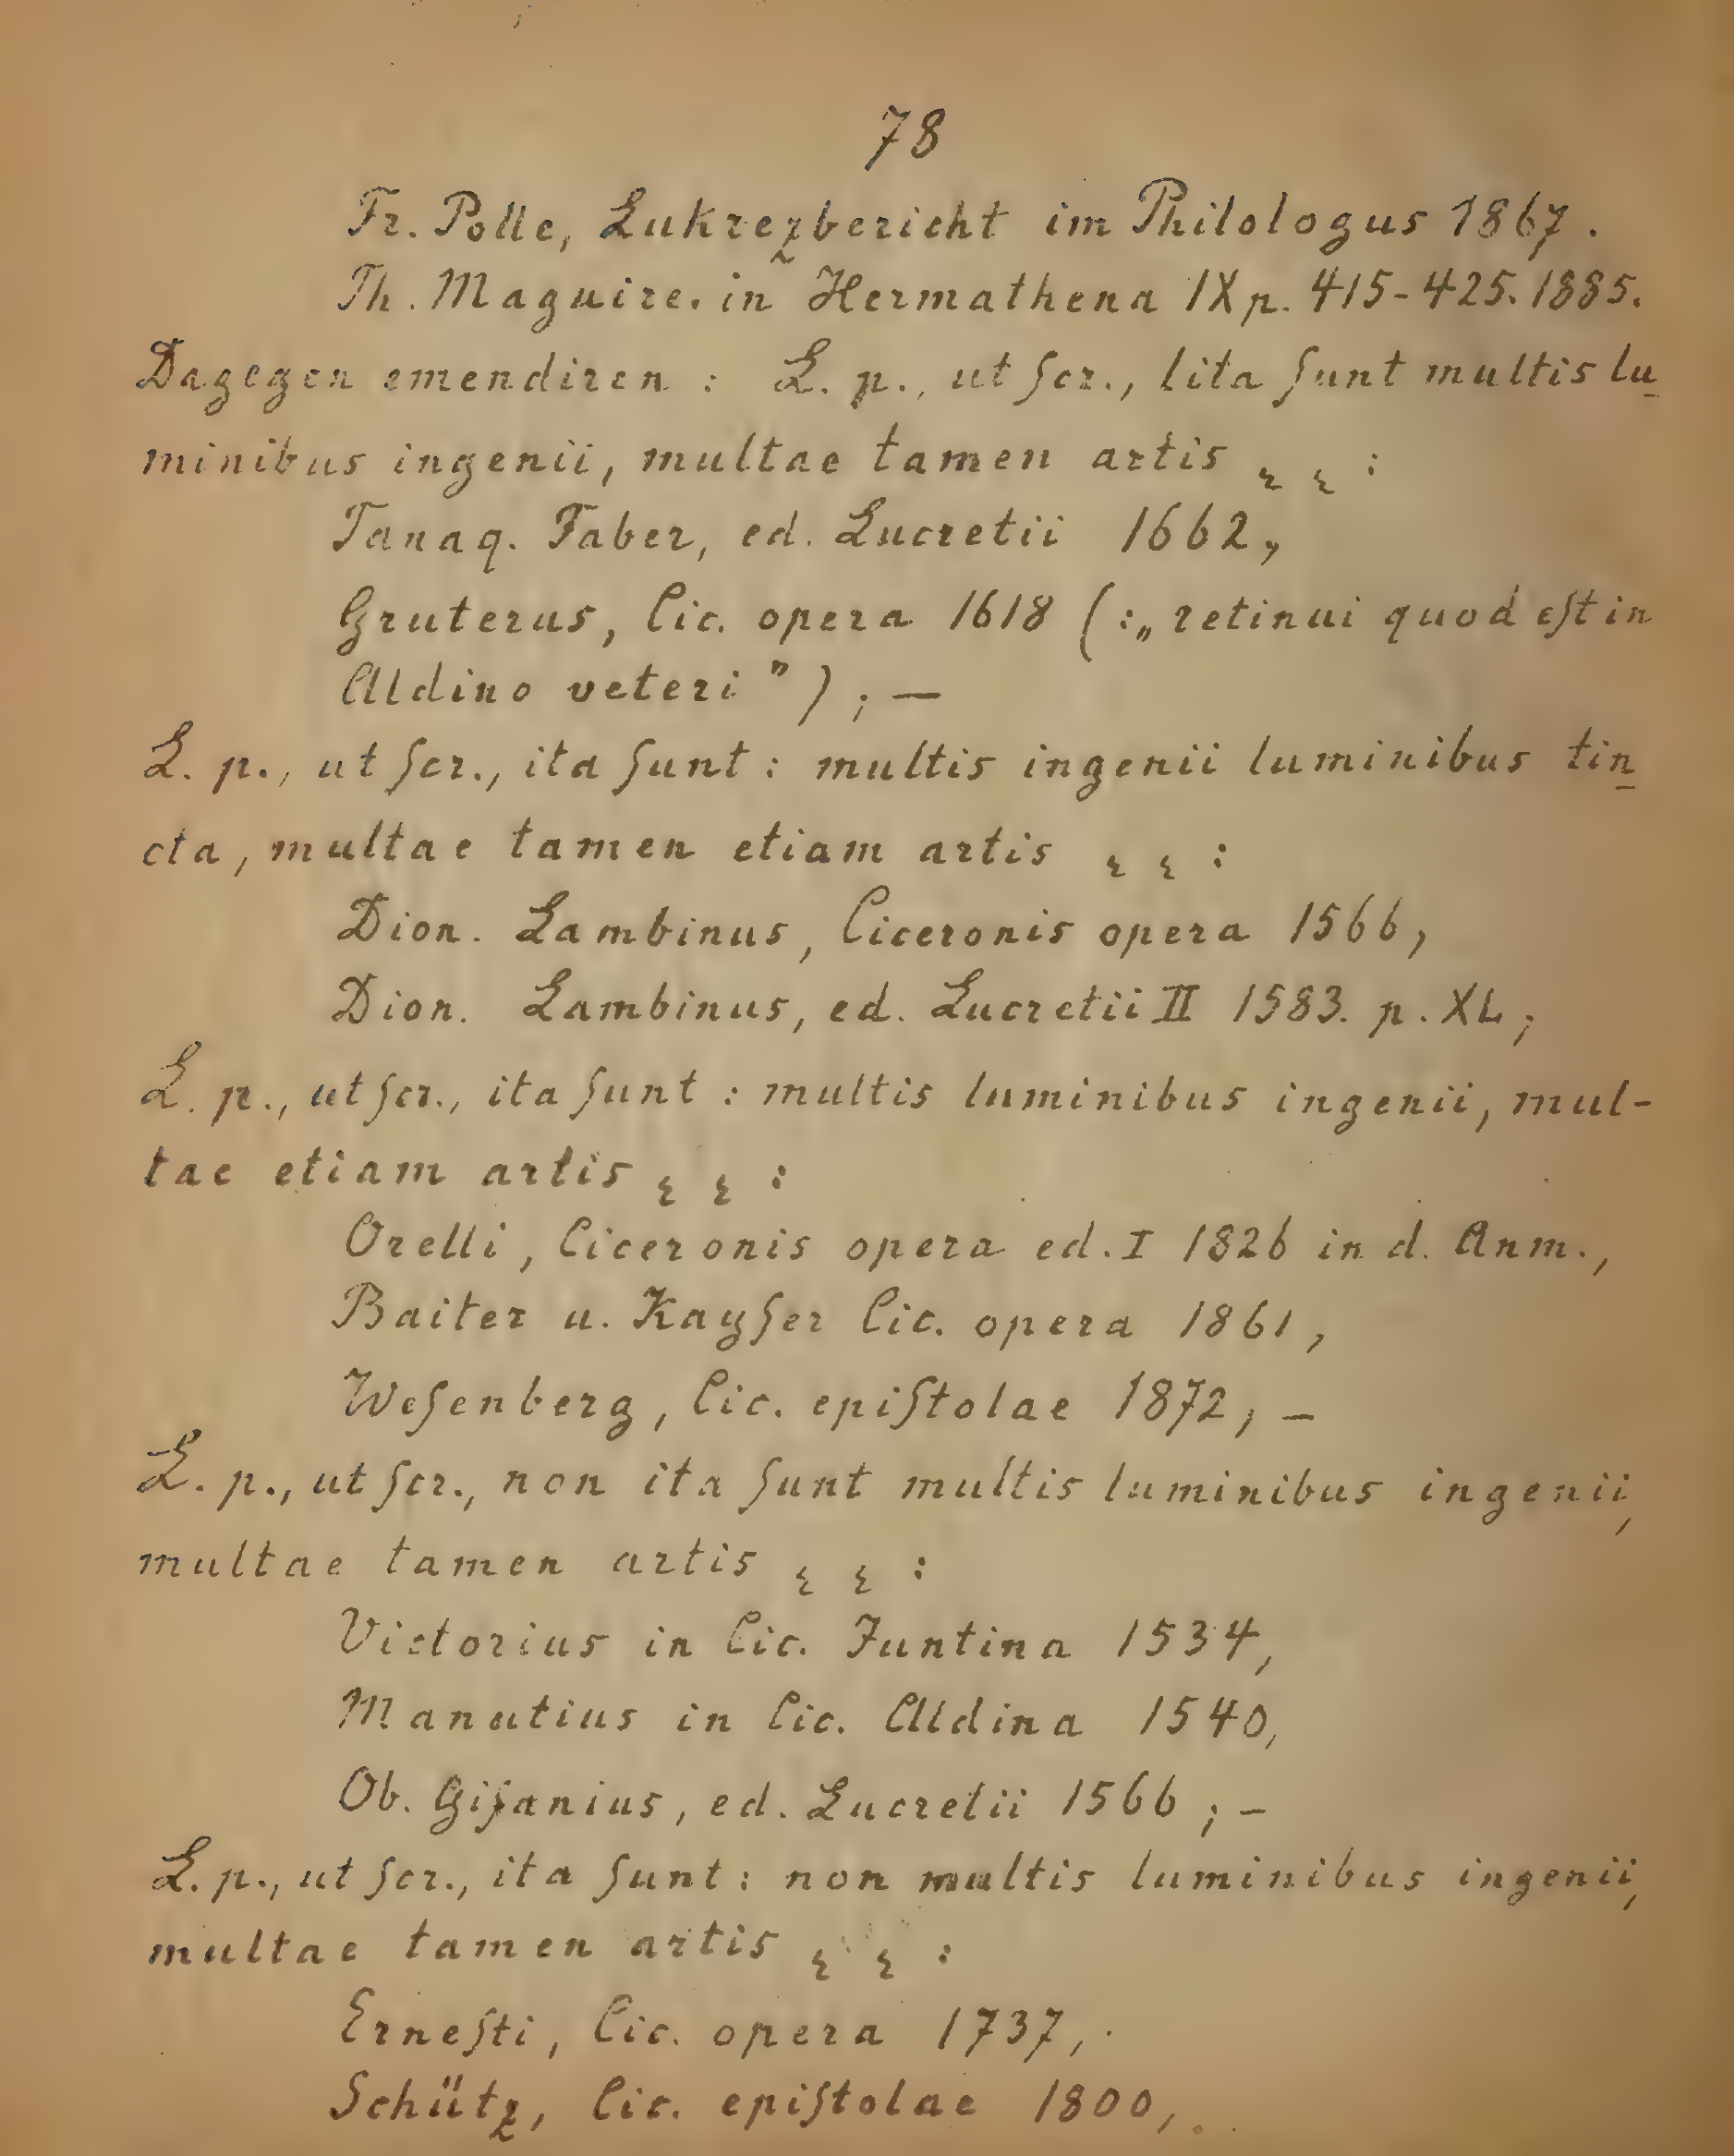 78
Fr. Polle, Lukrezbericht im Philologus 1867.
Th. Maguire. in Hermathena IX p. 415-425. 1885.
Dagegen emendiren : L. p., ut ſcr., lita ſunt multis lu
minibus ingenii, multae tamen artis ꝛ ꝛ :
Tanaq. Faber, ed. Lucretii 1662,
Gruterus, Cic. opera 1618 (: „retinui quod eſt in
Aldino veteri") ; —
L. p., ut ſcr., ita ſunt : multis ingenii luminibus tin
cta, multae tamen etiam artis ꝛ ꝛ :
Dion. Lambinus, Ciceronis opera 1566,
Dion. Lambinus, ed. Lucretii II 1583. p. XL ;
L. p., ut ſcr., ita ſunt : multis luminibus ingenii, mul-
tae etiam artis ꝛ ꝛ :
Orelli, Ciceronis opera ed. I 1826 in d. Anm.,
Baiter u. Kayſer Cic. opera 1861,
Weſenberg, Cic. epiſtolae 1872, —
L. p., ut ſcr., non ita ſunt multis luminibus ingenii,
multae tamen artis ꝛ ꝛ :
Victorius in Cic. Juntina 1534,
Manutius in Cic. Aldina 1540,
Ob. Gifanius, ed. Lucretii 1566 ; —
L. p., ut ſcr., ita ſunt : non multis luminibus ingenii,
multae tamen artis ꝛ ꝛ :
Erneſti, Cic. opera 1737,
Schütz, Cic. epiſtolae 1800,